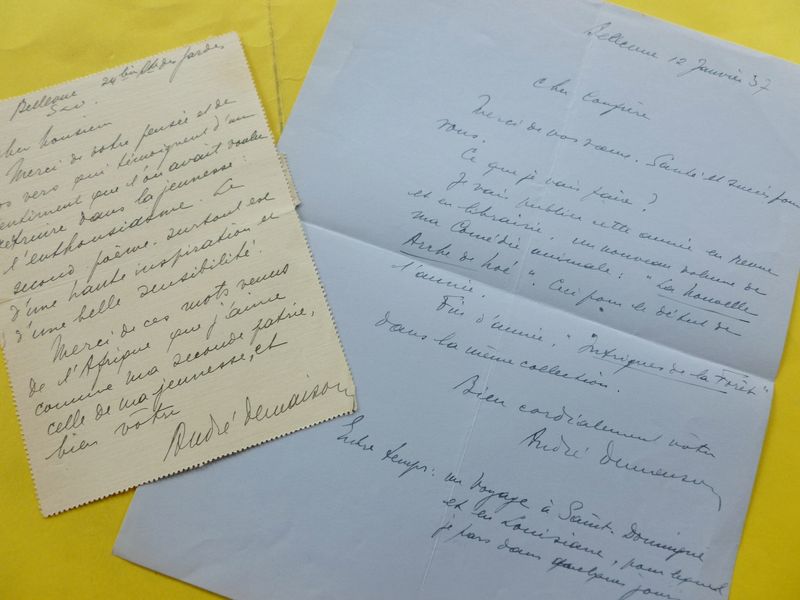 Bellevue 24 bis
S&O.
cher Monsieur
Merci de votre pensée et de
vos vers qui témoignent d'un
sentiment que l'on avait voulu
détruire dans la jeunesse :
l'enthousiasme. Le
second poème surtout est
d'une haute inspiration et
d'une belle sensibilité.
Merci de ces mots venus
de l'Afrique que j'aime
comme ma seconde patrie,
celle de ma jeunesse, et
bien vôtre
André Demaison
Bellevue 12 Janvier 37
Cher Confrère
Merci de vos vœux. Santé et succès pour
vous.
Ce que je vais faire ?
Je vais publier cette année en revue
et en librairie, un nouveau volume de
ma Comédie animale : "La Nouvelle
Arche de Noé". Ceci pour le début de
l'année.
Fin d'année, "Intrigues de la Forêt"
dans la même collection.
Bien cordialement vôtre
André Demaison
Entre temps : un voyage à Saint-Domingue
et en Louisiane, pour lequel
je pars dans quelques jours